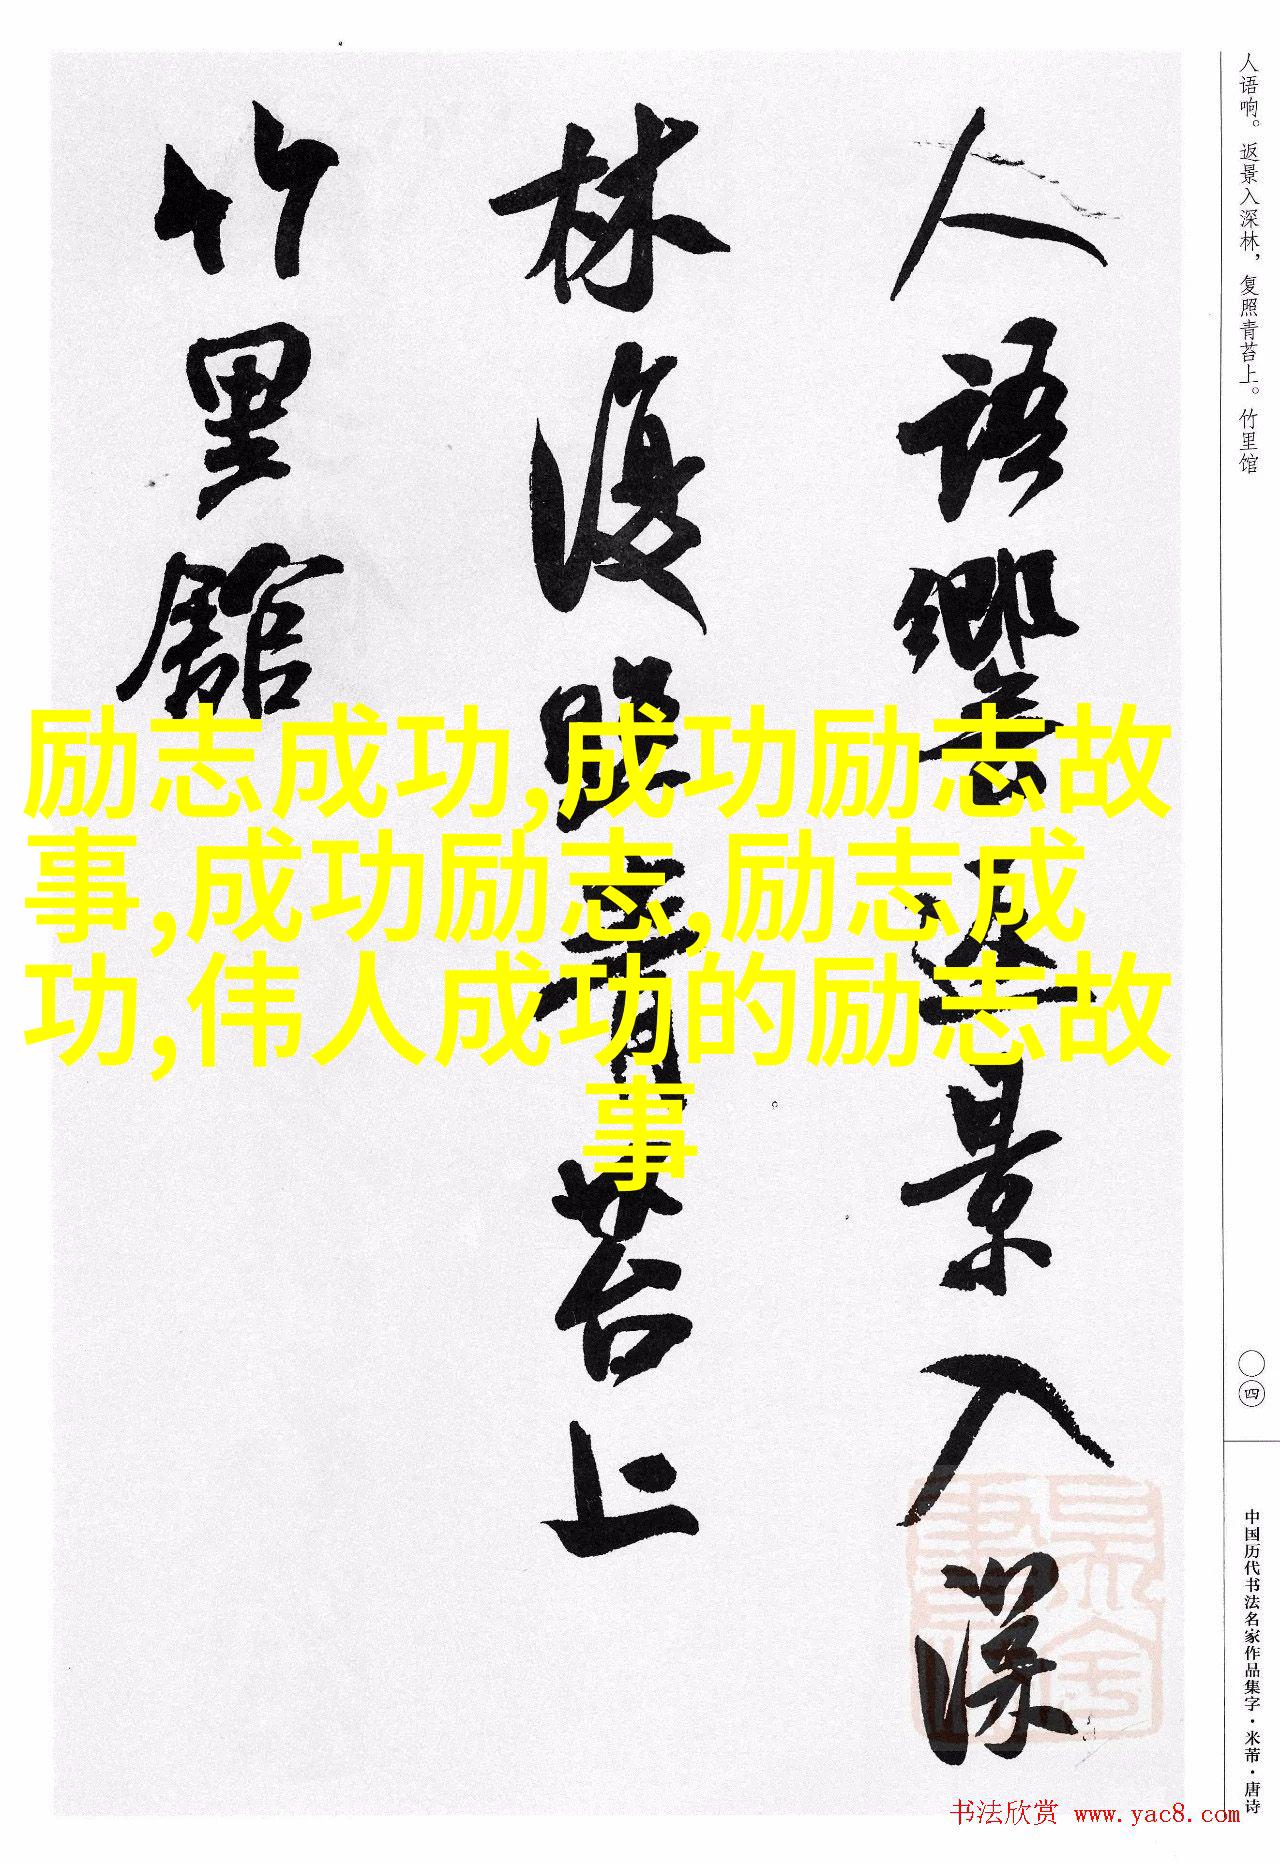 人语响。返景入深林，复照青苔上。竹里馆
人語響返景入深
林復照青苔上
竹里館
励志成功,成功励志故
事,成功励志,励志成
功,伟人成功的励志故
事
〇四
中国历代书法名家作品集字·米芾·唐诗
书法欣赏 www.yac8.com